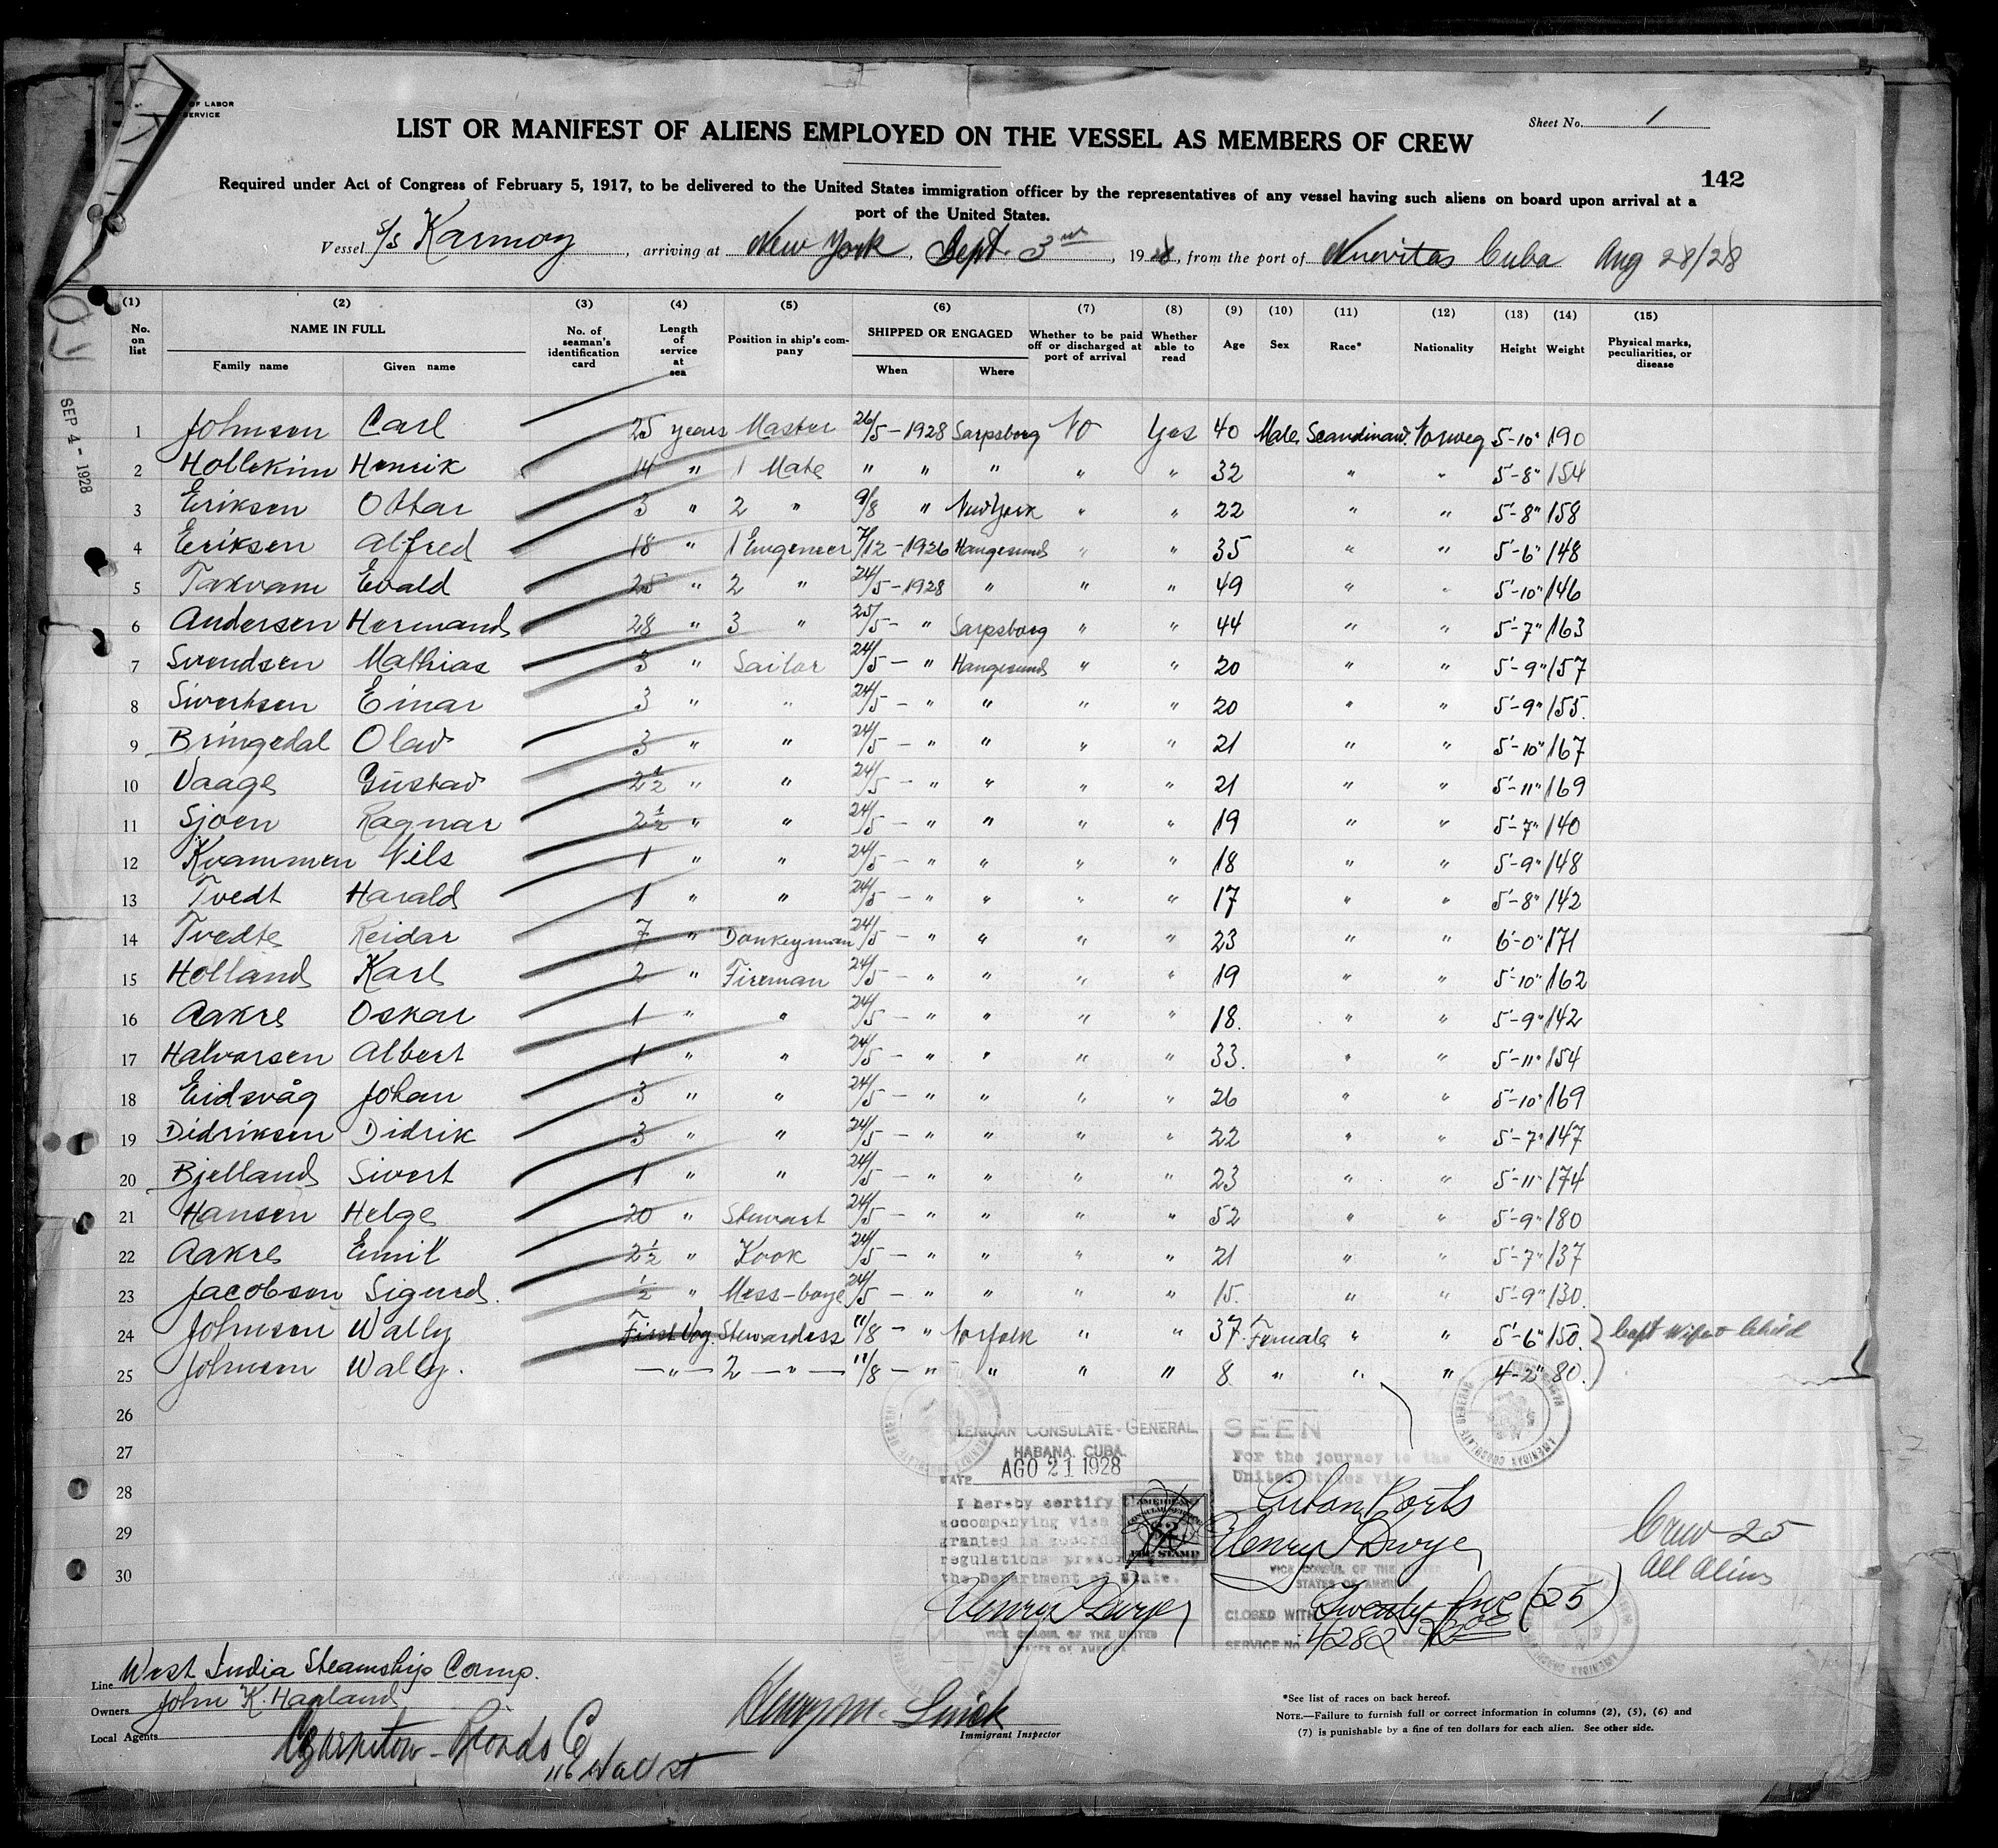 OF LABOR
SERVICE
Sheet No. 1
LIST OR MANIFEST OF ALIENS EMPLOYED ON THE VESSEL AS MEMBERS OF CREW
142
Required under Act of Congress of February 5, 1917, to be delivered to the United States immigration officer by the representatives of any vessel having such aliens on board upon arrival at a
port of the United States.
Vessel S/S Karmoy, arriving at New York, Sept. 3rd, 1928, from the port of Nuevitas Cuba Aug 28/28
(1) (2) (3) (4) (5) (6) (7) (8) (9) (10) (11) (12) (13) (14) (15)
No. on list NAME IN FULL Family name Given name No. of seaman's identification card Length of service at sea Position in ship's company SHIPPED OR ENGAGED When Where Whether to be paid off or discharged at port of arrival Whether able to read Age Sex Race* Nationality Height Weight Physical marks, peculiarities, or disease
SEP 4 - 1928
1 Johnsen Carl 25 years Master 26/5 - 1928 Sarpsborg No Yes 40 Male Scandinav. Norweg 5-10" 190
2 Hollekim Henrik 14 " 1 Mate " " " " " 32 " " 5'-8" 154
3 Eriksen Ottar 3 " 2 " 9/8 " New York " " 22 " " 5'-8" 158
4 Eriksen Alfred 18 " 1 Engeneer 7/12 - 1926 Haugesund " " 35 " " 5'-6" 148
5 Takvam Evald 25 " 2 " 24/5 - 1928 " " " 49 " " 5'-10" 146
6 Andersen Hermand 28 " 3 " 25/5 - " Sarpsborg " " 44 " " 5'-7" 163
7 Svendsen Mathias 3 " Sailor 24/5 - " Haugesund " " 20 " " 5'-9" 157
8 Sivertsen Einar 3 " " 24/5 - " " " " 20 " " 5'-9" 155.
9 Bringedal Olav 3 " " 24/5 - " " " " 21 " " 5'-10" 167
10 Vaage Gustav 2½ " " 24/5 - " " " " 21 " " 5'-11" 169
11 Sjoen Ragnar 2½ " " 24/5 - " " " " 19 " " 5'-7" 140
12 Kvammen Nils 1 " " 24/5 - " " " " 18 " " 5'-9" 148
13 Tvedt Harald 1 " " 24/5 - " " " " 17 " " 5'-8" 142
14 Tvedte Reidar 7 " Donkeyman 24/5 - " " " " 23 " " 6'-0" 171
15 Holland Karl 2 " Fireman 24/5 - " " " " 19 " " 5'-10" 162
16 Aakre Oskar 1 " " 24/5 - " " " " 18. " " 5'-9" 142
17 Halvorsen Albert 1 " " 24/5 - " " " " 33. " " 5'-11" 154
18 Eidsvåg Johan 3 " " 24/5 - " " " " 26 " " 5'-10" 169
19 Didriksen Didrik 3 " " 24/5 - " " " " 22 " " 5'-7" 147
20 Bjelland Sivert 1 " " 24/5 - " " " " 23 " " 5'-11" 174
21 Hansen Helge 20 " Stewart 24/5 - " " " " 52 " " 5'-9" 180
22 Aakre Emil 2½ " Kook 24/5 - " " " " 21 " " 5'-7" 137
23 Jacobsen Sigurd. ½ " Mess-boye 24/5 - " " " " 15. " " 5'-9" 130.
24 Johnsen Wally First Voy. Stewardess 11/8 - " Norfolk " " 37 Female " " 5'-6" 150. Capt Wife & Child
25 Johnsen Wally. — " — 2 — " — 11/8 - " " " " 8 " " " 4-2" 80.
26
27
28
29
30
AMERICAN CONSULATE GENERAL
AMERICAN CONSULATE-GENERAL
HABANA, CUBA.
DATE AGO 21 1928
I hereby certify
accompanying visa
granted in
regulations
the Department of State.
Henry T Dwyer
VICE CONSUL OF THE UNITED
STATES OF AMERICA
AMERICAN CONSULAR SERVICE
$2
FEE STAMP
SEEN
For the journey to the
United States via
Cuban Ports
Henry T Dwyer
VICE CONSUL OF THE UNITED
STATES OF AMERICA
CLOSED WITH Twenty five (25)
SERVICE No. 4282
Crew 25
All Aliens
Line West India Steamship Comp.
Owners John K. Haaland
Local Agents
116 Wall St
Immigrant Inspector
*See list of races on back hereof.
NOTE.—Failure to furnish full or correct information in columns (2), (5), (6) and
(7) is punishable by a fine of ten dollars for each alien. See other side.